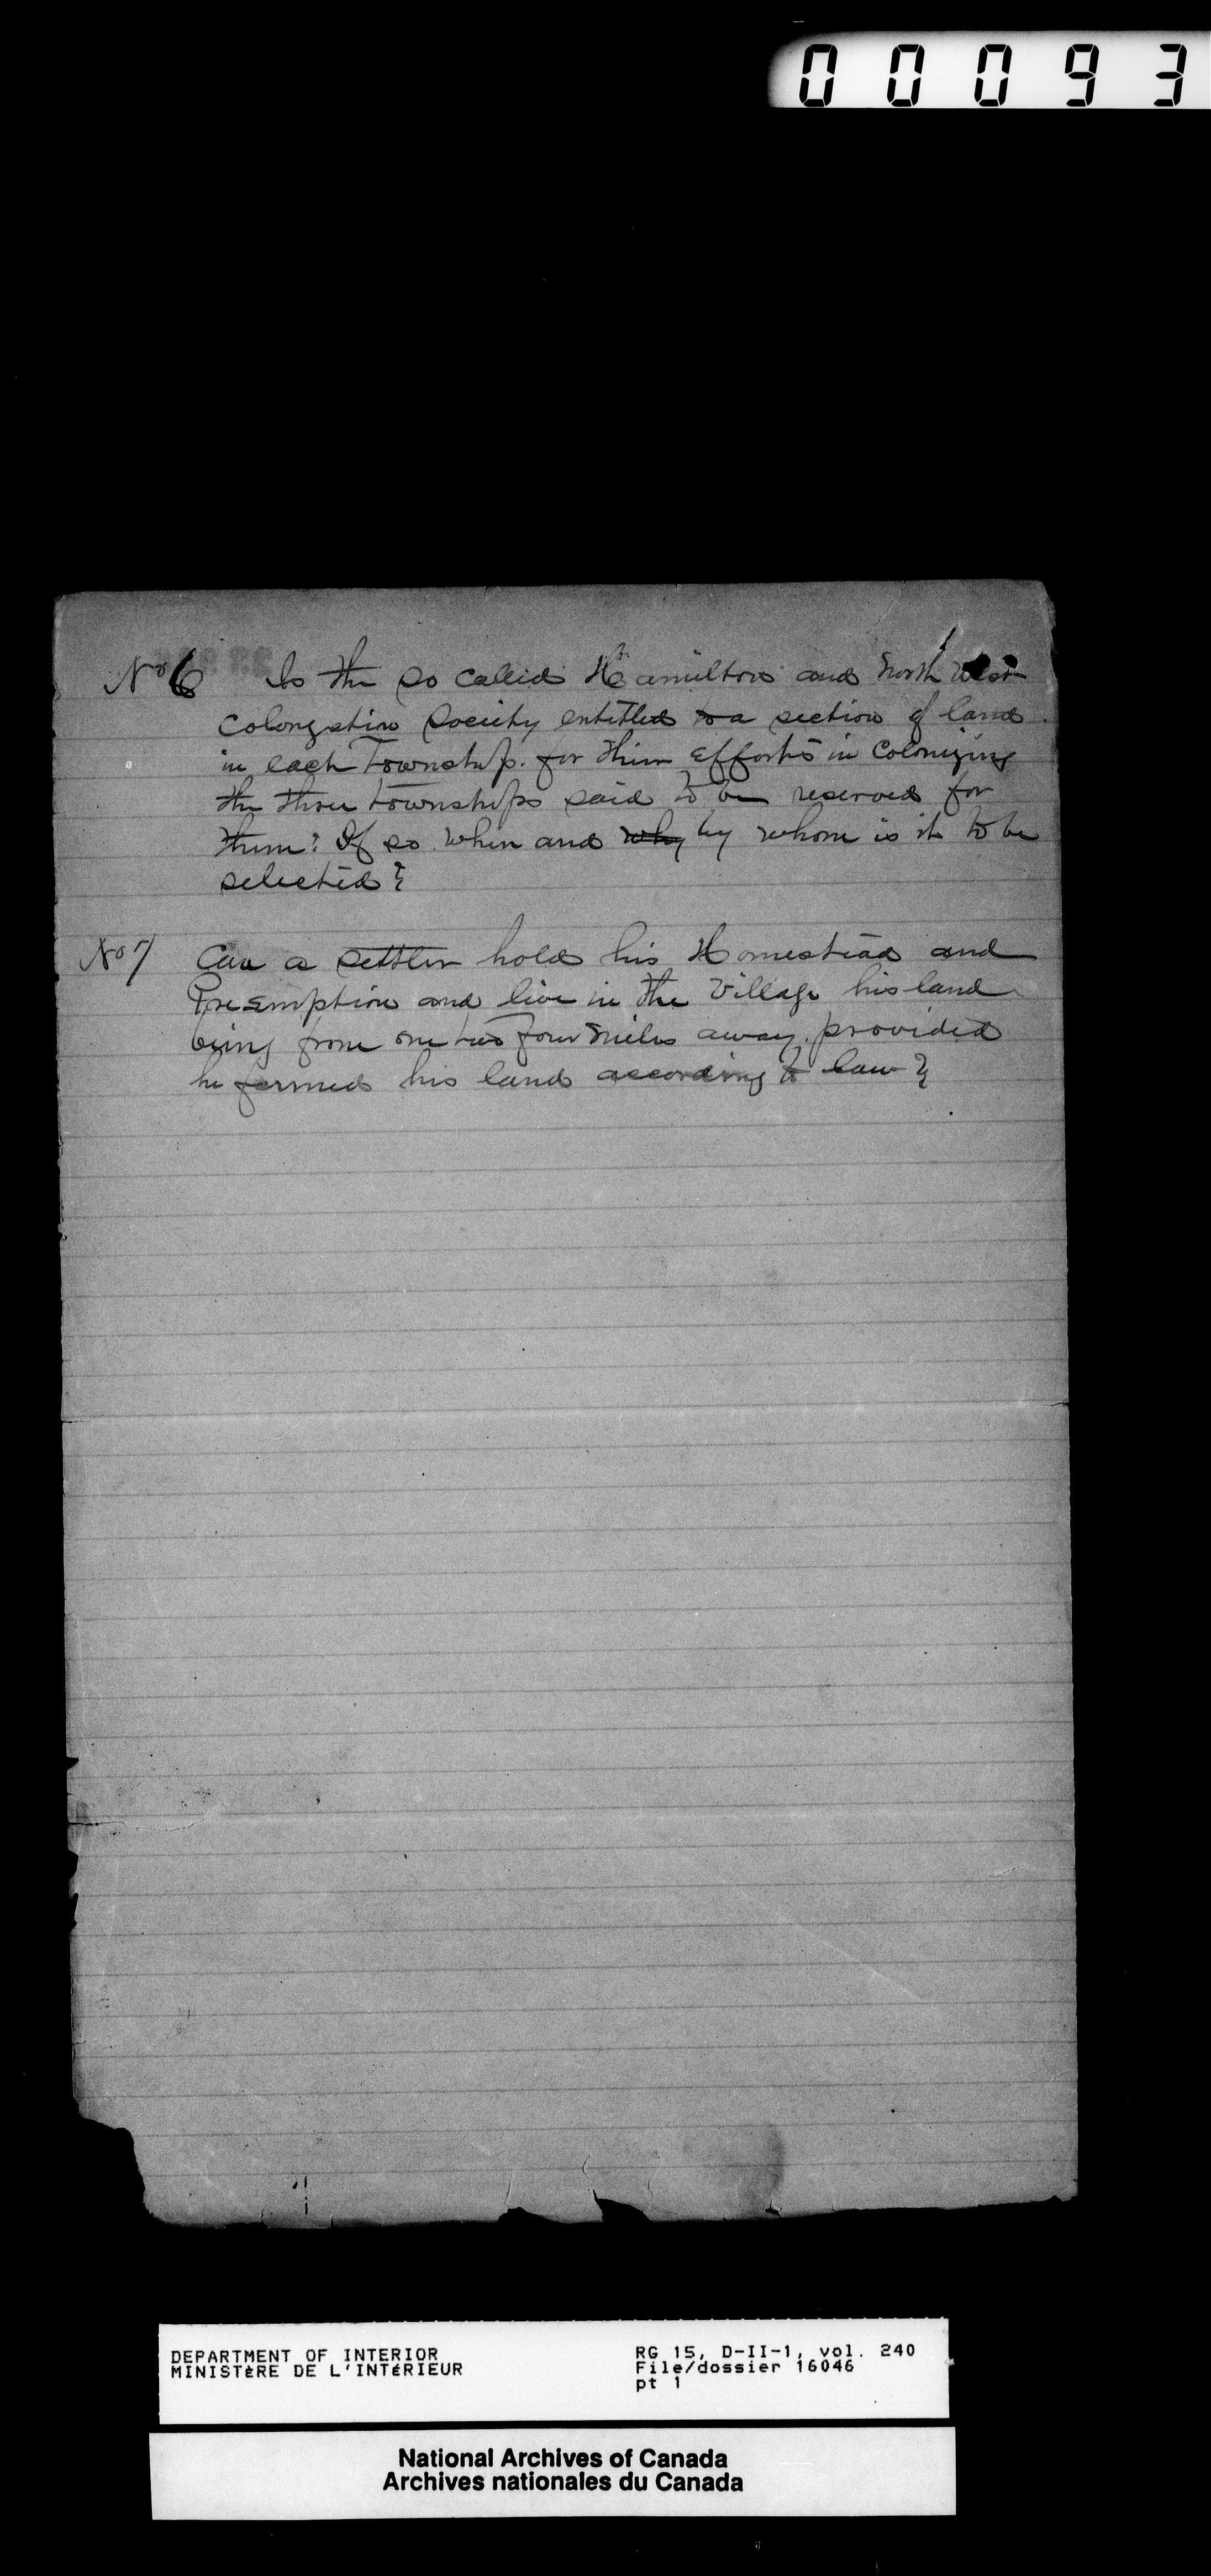 00093
No 6 Is the so called Hamilton and North West
Colonization Society entitled to a section of land
in each Township. for their Efforts in Colonizing
the three townships said to be reserved for
them? If so. when and why by whom is it to be
selected?
No 7 Can a settler hold his Homestead and
PreEmption and live in the Village his land
being from one two four miles away. provided
he farmed his land according to law?
DEPARTMENT OF INTERIOR
MINISTÈRE DE L'INTÉRIEUR
RG 15, D-II-1, vol. 240
File/dossier 16046
pt 1
National Archives of Canada
Archives nationales du Canada